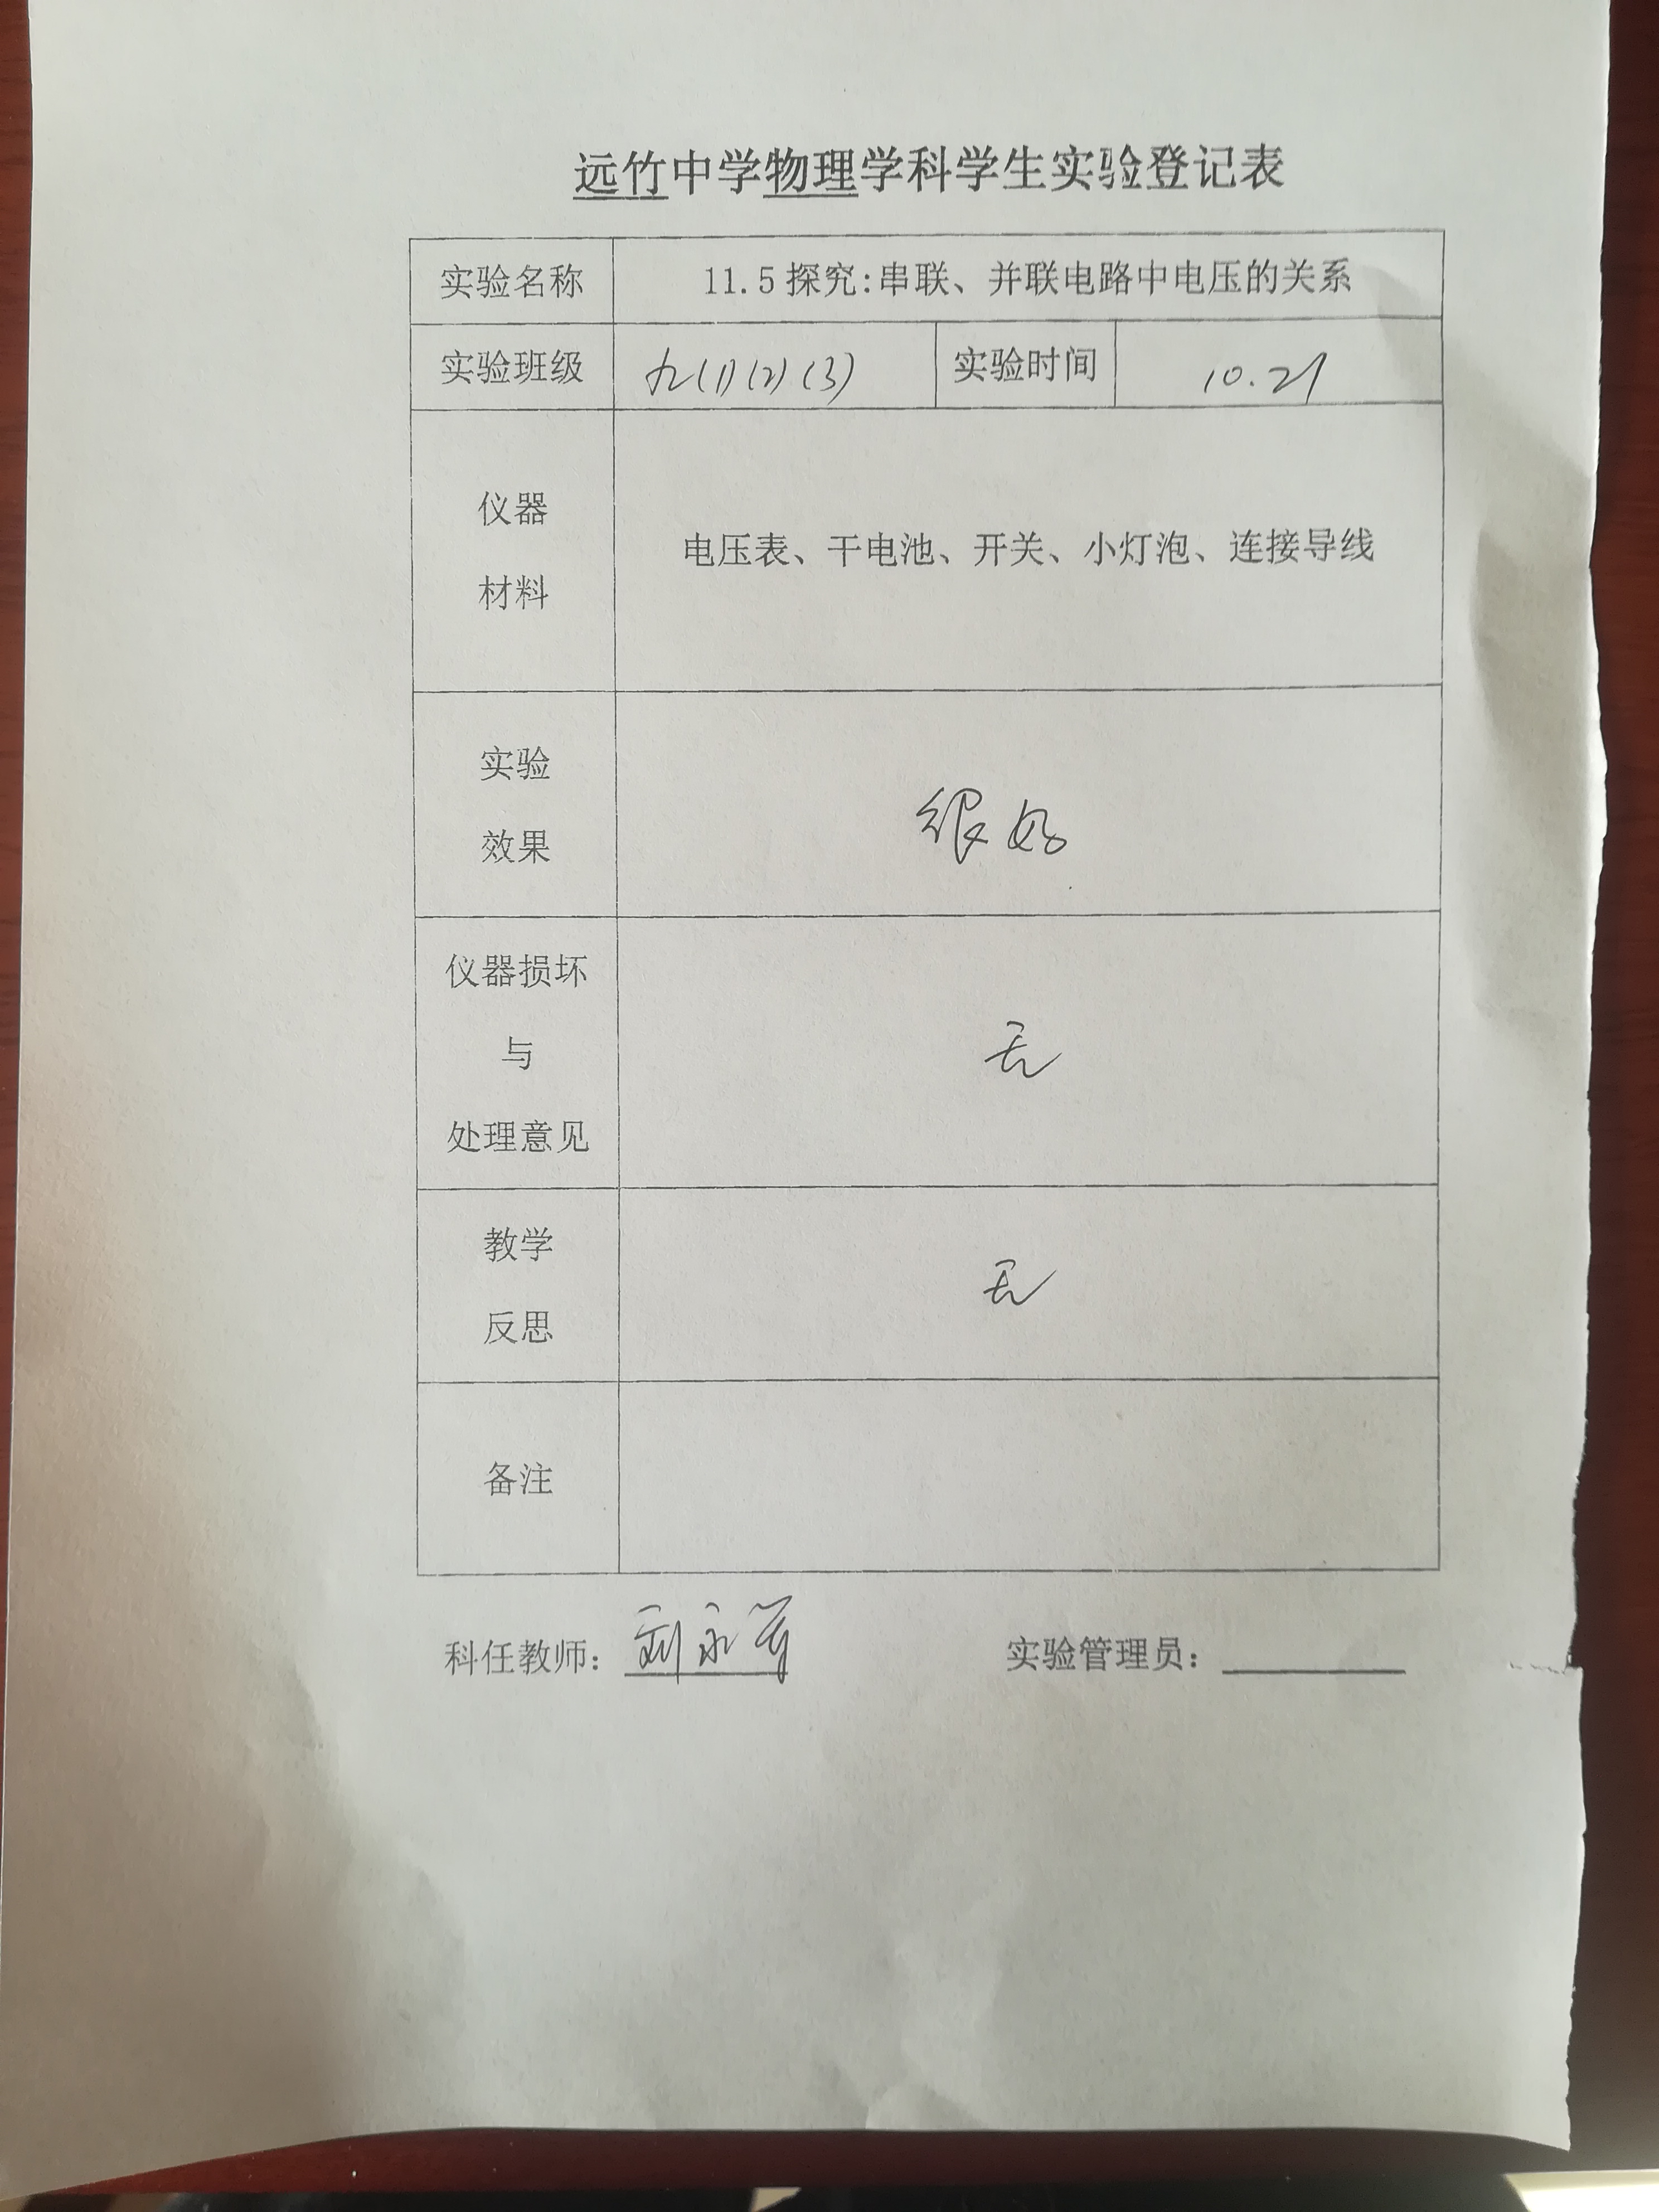 远竹中学物理学科学生实验登记表
实验名称 11.5 探究:串联、并联电路中电压的关系
实验班级 九(1)(2)(3) 实验时间 10.21
仪器
材料
电压表、干电池、开关、小灯泡、连接导线
实验
效果
很好
仪器损坏
与
处理意见
无
教学
反思
无
备注
科任教师: 刘永 实验管理员: